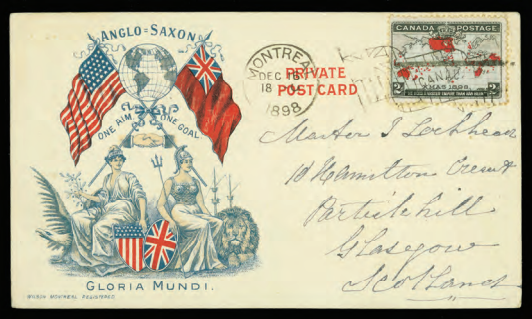 ANGLO=SAXON
ONE AIM ONE GOAL
GLORIA MUNDI.
WILSON MONTREAL REGISTERED
MONTREAL
DEC
18
1898
PRIVATE
POSTCARD
CANADA POSTAGE
XMAS 1898.
2c 2c
Master J Lochhead
10 Hamilton Crescent
Partickhill
Glasgow
Scotland